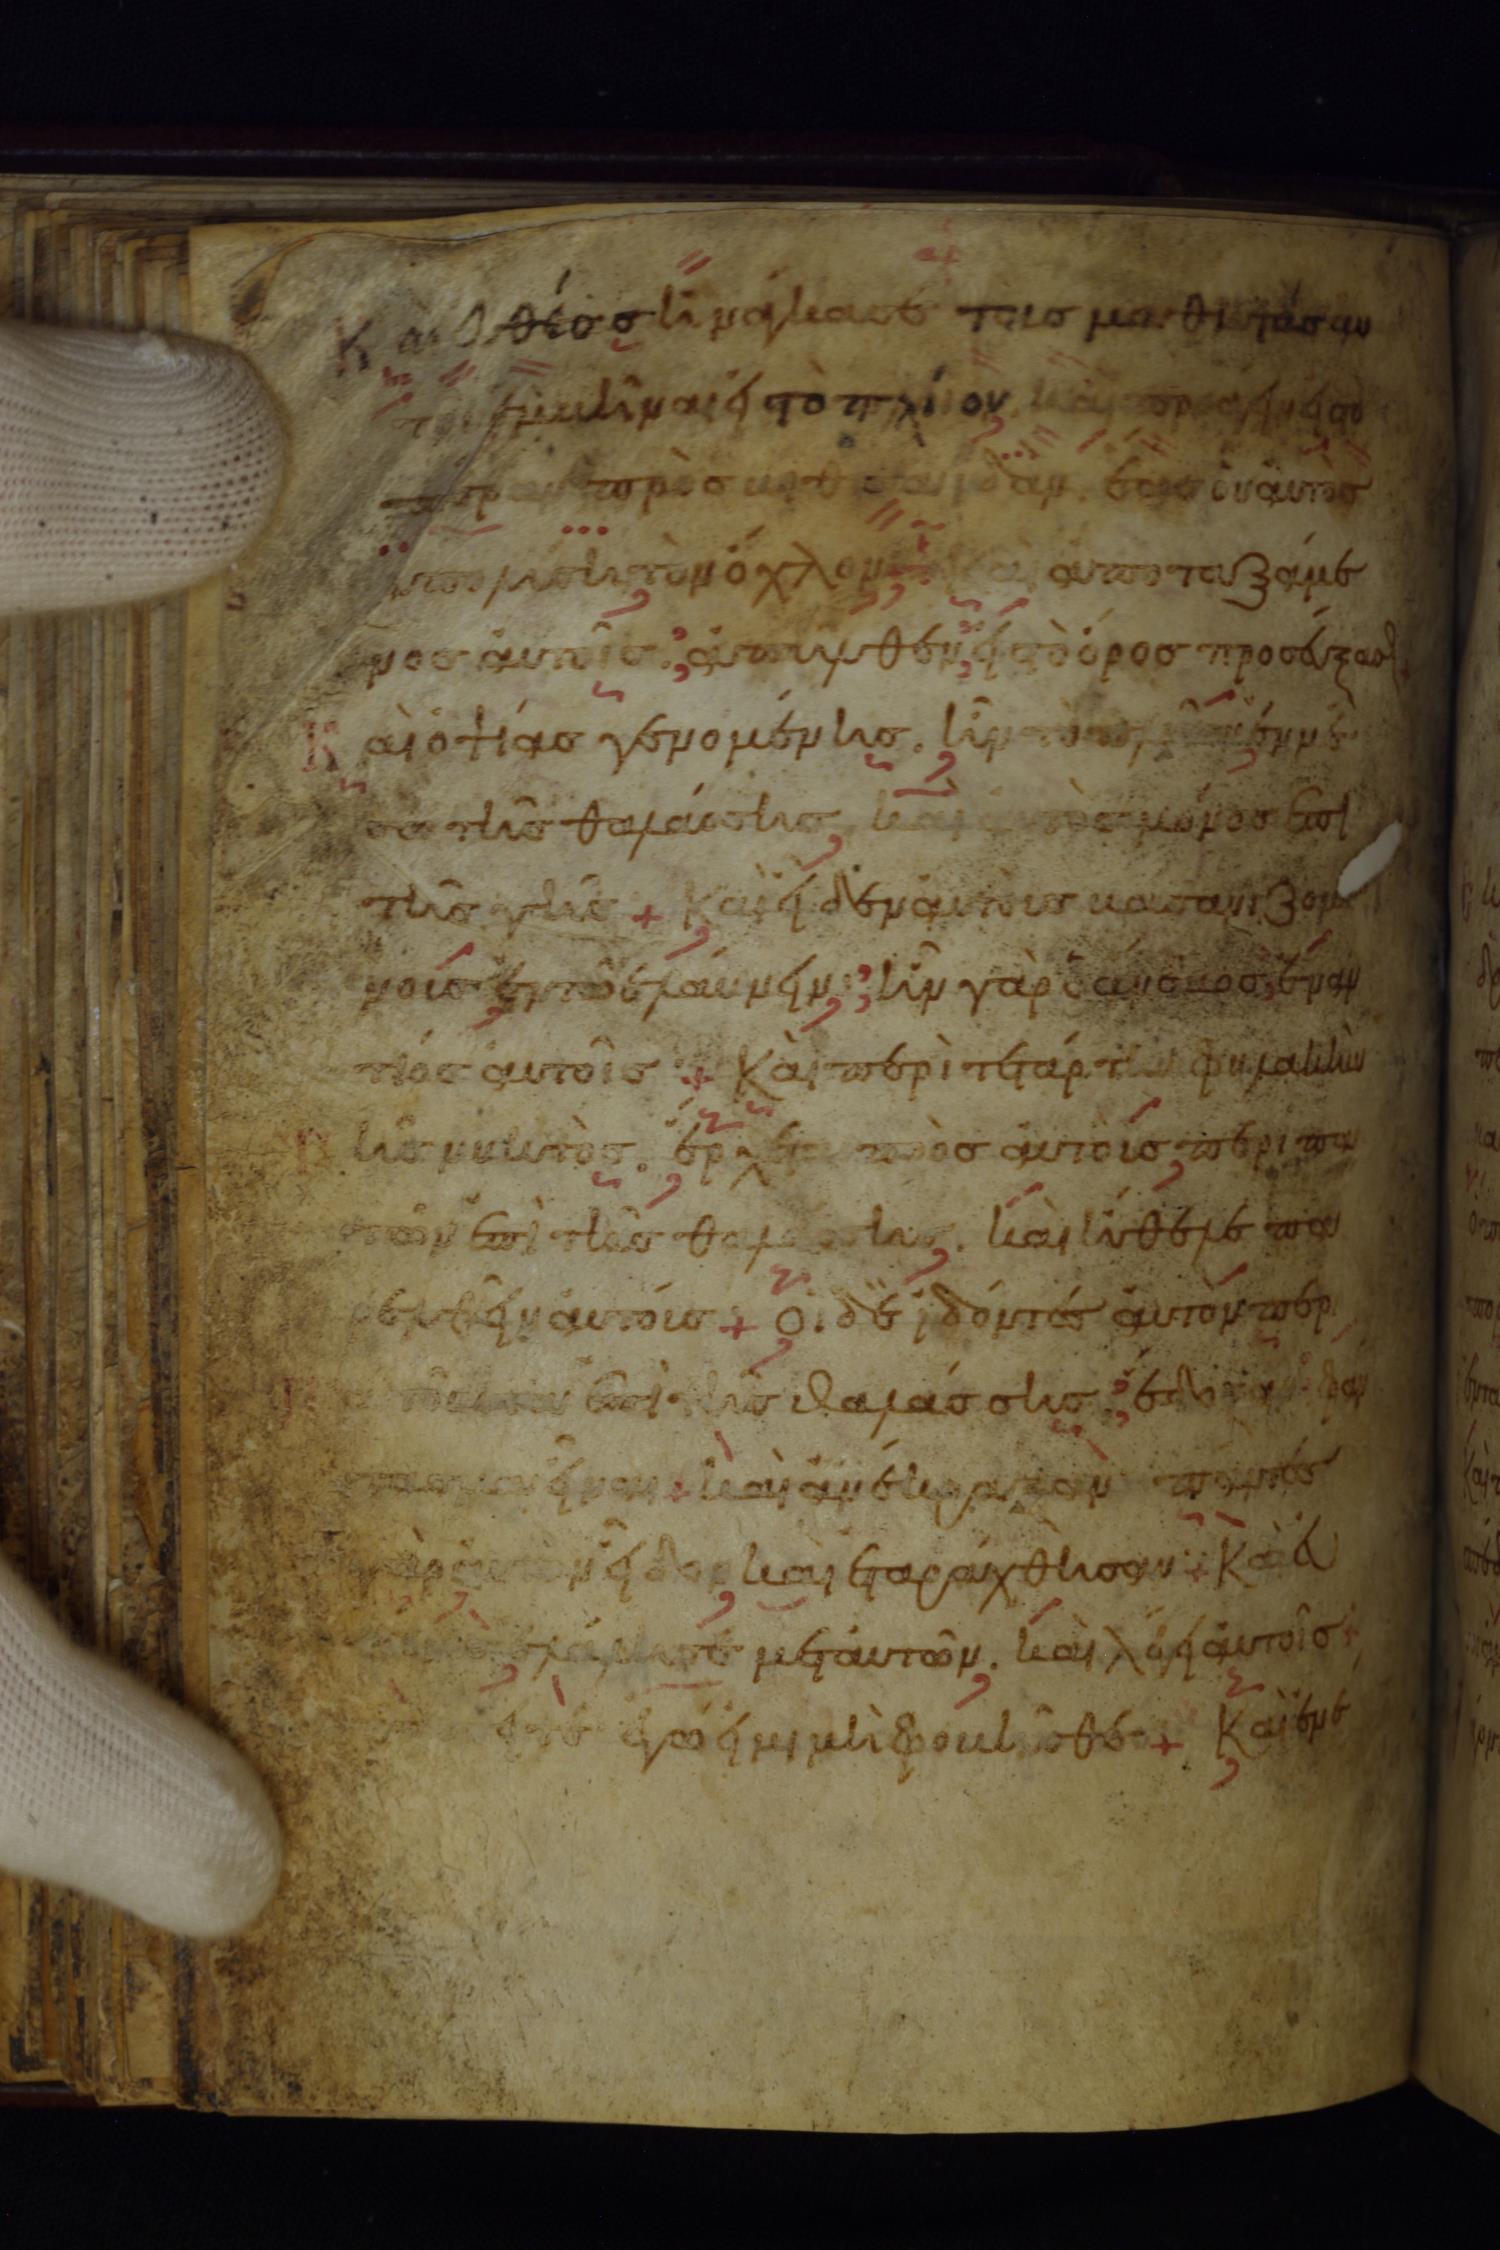 Καὶ εὐθέως ἠνάγκασε τοις μαθητὰσ αυ
τοῦ ἐμβῆναι εἰς τὸ πλίον καὶ προάγειν εἰσ τὸ
πέραν πρὸσ βηθσαϊδὰν. ἕωσ οὗ αὐτὸσ
ἀπολύσει τὸν ὄχλον + Καὶ ἀποταξάμε
νοσ αὐτοῖσ. ἀπῆλθεν εἰσ τὸ ὄροσ προσεύξασθ
Καὶ ὀψίασ γενομένησ. ἦν τὸ πλοῖον ἐν μέ
σω τῆσ θαλάσσησ, καὶ αὐτὸσ μόνοσ ἐπὶ
τῆσ γῆσ + Καὶ εἶδεν αὐτοὺσ βασανιζομέ
νοισ ἐν τῶ ἐλαύνειν. ἦν γὰρ ὁ ἄνεμοσ ἐναν
τίοσ αὐτοῖσ + Καὶ περὶ τετάρτην φυλακὴν
τῆσ νυκτὸσ. ἔρχεται πρὸσ αὐτοίσ περιπα
τῶν ἐπὶ τῆσ θαλάσσησ. καὶ ἤθελε παρ
ελθεῖν αὐτοίσ + Οἱ δὲ ἰδόντεσ αὐτὸν περι
πατοῦντα ἐπὶ τῆσ θαλάσσησ. ἔδοξαν
φάντασμα εἶναι + καὶ ἀνέκραξαν πάντεσ
γὰρ αὐτὸν εἶδον καὶ ἐταράχθησαν + Καὶ εὐ
θέωσ ἐλάλησε μετ αὐτῶν. καὶ λέγει αὐτοῖσ +
θαρσεῖτε ἐγώ εἰμι μὴ φοβῆσθε + Καὶ ἀνέ